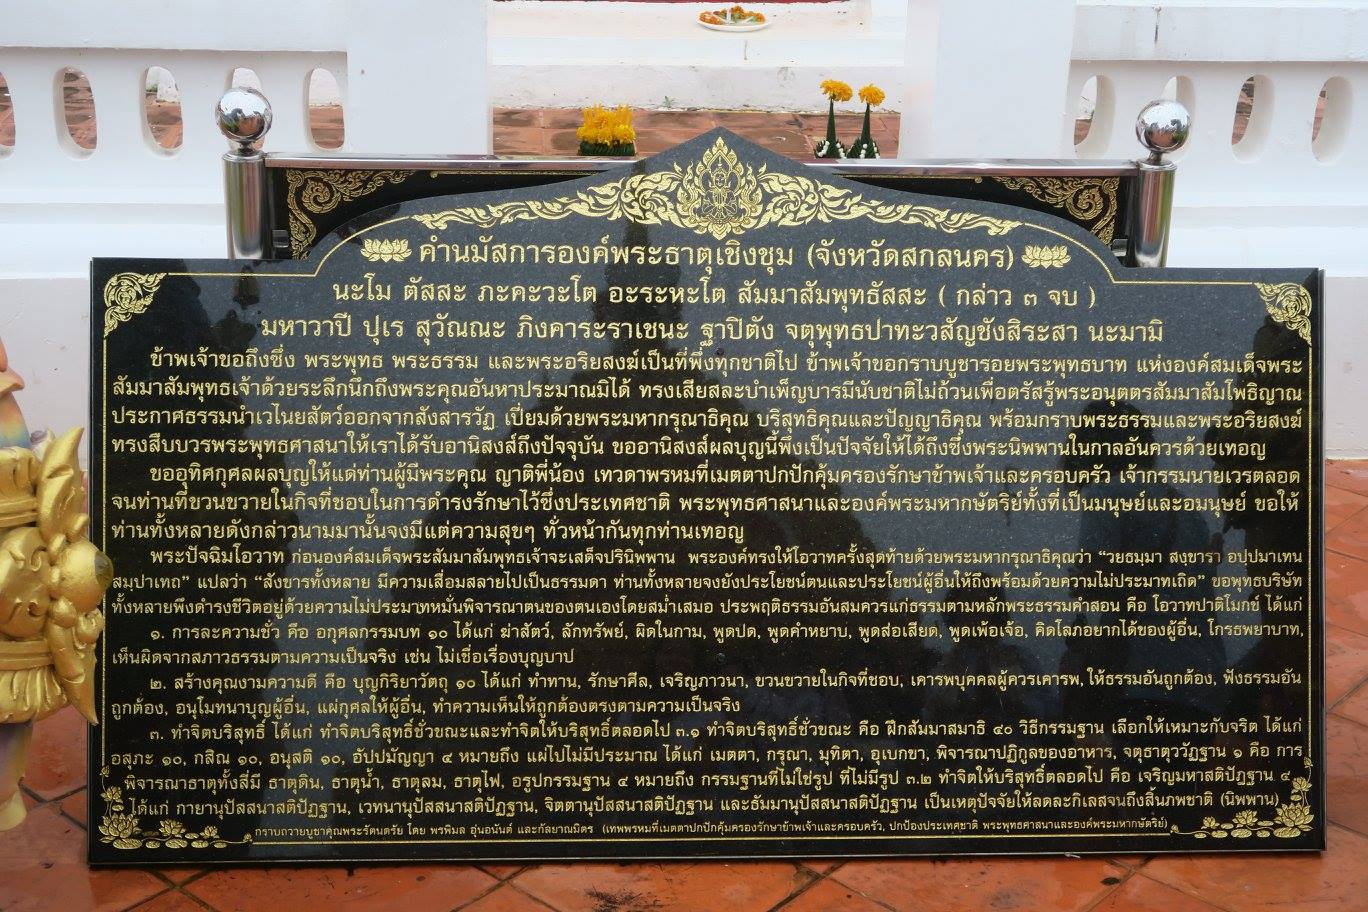 คำนมัสการองค์พระธาตุเชิงชุม (จังหวัดสกลนคร)
นะโม ตัสสะ ภะคะวะโต อะระหะโต สัมมาสัมพุทธัสสะ ( กล่าว ๓ จบ )
มหาวาปี ปุเร สุวัณณะ ภิงคาระราเชนะ ฐาปิตัง จตุพุทธปาทะวสัญชังสิระสา นะมามิ
ข้าพเจ้าขอถึงซึ่ง พระพุทธ พระธรรม และพระอริยสงฆ์เป็นที่พึ่งทุกชาติไป ข้าพเจ้าขอกราบบูชารอยพระพุทธบาท แห่งองค์สมเด็จพระ
สัมมาสัมพุทธเจ้าด้วยระลึกนึกถึงพระคุณอันหาประมาณมิได้ ทรงเสียสละบำเพ็ญบารมีนับชาติไม่ถ้วนเพื่อตรัสรู้พระอนุตตรสัมมาสัมโพธิญาณ
ประกาศธรรมนำเวไนยสัตว์ออกจากสังสารวัฏ เปี่ยมด้วยพระมหากรุณาธิคุณ บริสุทธิคุณและปัญญาธิคุณ พร้อมกราบพระธรรมและพระอริยสงฆ์
ทรงสืบบวรพระพุทธศาสนาให้เราได้รับอานิสงส์ถึงปัจจุบัน ขออานิสงส์ผลบุญนี้พึงเป็นปัจจัยให้ได้ถึงซึ่งพระนิพพานในกาลอันควรด้วยเทอญ
ขออุทิศกุศลผลบุญให้แด่ท่านผู้มีพระคุณ ญาติพี่น้อง เทวดาพรหมที่เมตตาปกปักคุ้มครองรักษาข้าพเจ้าและครอบครัว เจ้ากรรมนายเวรตลอด
จนท่านที่ขวนขวายในกิจที่ชอบในการดำรงรักษาไว้ซึ่งประเทศชาติ พระพุทธศาสนาและองค์พระมหากษัตริย์ทั้งที่เป็นมนุษย์และอมนุษย์ ขอให้
ท่านทั้งหลายดังกล่าวนามมานั้นจงมีแต่ความสุขๆ ทั่วหน้ากันทุกท่านเทอญ
พระปัจฉิมโอวาท ก่อนองค์สมเด็จพระสัมมาสัมพุทธเจ้าจะเสด็จปรินิพพาน พระองค์ทรงให้โอวาทครั้งสุดท้ายด้วยพระมหากรุณาธิคุณว่า “วยธมฺมา สงฺขารา อปฺปมาเทน
สมฺปาเทถ” แปลว่า “สังขารทั้งหลาย มีความเสื่อมสลายไปเป็นธรรมดา ท่านทั้งหลายจงยังประโยชน์ตนและประโยชน์ผู้อื่นให้ถึงพร้อมด้วยความไม่ประมาทเถิด” ขอพุทธบริษัท
ทั้งหลายพึงดำรงชีวิตอยู่ด้วยความไม่ประมาทหมั่นพิจารณาตนของตนเองโดยสม่ำเสมอ ประพฤติธรรมอันสมควรแก่ธรรมตามหลักพระธรรมคำสอน คือ โอวาทปาติโมกข์ ได้แก่
๑. การละความชั่ว คือ อกุศลกรรมบท ๑๐ ได้แก่ ฆ่าสัตว์, ลักทรัพย์, ผิดในกาม, พูดปด, พูดคำหยาบ, พูดส่อเสียด, พูดเพ้อเจ้อ, คิดโลภอยากได้ของผู้อื่น, โกรธพยาบาท,
เห็นผิดจากสภาวธรรมตามความเป็นจริง เช่น ไม่เชื่อเรื่องบุญบาป
๒. สร้างคุณงามความดี คือ บุญกิริยาวัตถุ ๑๐ ได้แก่ ทำทาน, รักษาศีล, เจริญภาวนา, ขวนขวายในกิจที่ชอบ, เคารพบุคคลผู้ควรเคารพ, ให้ธรรมอันถูกต้อง, ฟังธรรมอัน
ถูกต้อง, อนุโมทนาบุญผู้อื่น, แผ่กุศลให้ผู้อื่น, ทำความเห็นให้ถูกต้องตรงตามความเป็นจริง
๓. ทำจิตบริสุทธิ์ ได้แก่ ทำจิตบริสุทธิ์ชั่วขณะและทำจิตให้บริสุทธิ์ตลอดไป ๓.๑ ทำจิตบริสุทธิ์ชั่วขณะ คือ ฝึกสัมมาสมาธิ ๔๐ วิธีกรรมฐาน เลือกให้เหมาะกับจริต ได้แก่
อสุภะ ๑๐, กสิณ ๑๐, อนุสติ ๑๐, อัปปมัญญา ๔ หมายถึง แผ่ไปไม่มีประมาณ ได้แก่ เมตตา, กรุณา, มุทิตา, อุเบกขา, พิจารณาปฏิกูลของอาหาร, จตุธาตุววัฏฐาน ๑ คือ การ
พิจารณาธาตุทั้งสี่มี ธาตุดิน, ธาตุน้ำ, ธาตุลม, ธาตุไฟ, อรูปกรรมฐาน ๔ หมายถึง กรรมฐานที่ไม่ใช่รูป ที่ไม่มีรูป ๓.๒ ทำจิตให้บริสุทธิ์ตลอดไป คือ เจริญมหาสติปัฏฐาน ๔
ได้แก่ กายานุปัสสนาสติปัฏฐาน, เวทนานุปัสสนาสติปัฏฐาน, จิตตานุปัสสนาสติปัฏฐาน และธัมมานุปัสสนาสติปัฏฐาน เป็นเหตุปัจจัยให้ลดละกิเลสจนถึงสิ้นภพชาติ (นิพพาน)
กราบถวายบูชาคุณพระรัตนตรัย โดย พรพิมล อุ่นอนันต์ และกัลยาณมิตร (เทพพรหมที่เมตตาปกปักคุ้มครองรักษาข้าพเจ้าและครอบครัว, ปกป้องประเทศชาติ พระพุทธศาสนาและองค์พระมหากษัตริย์)